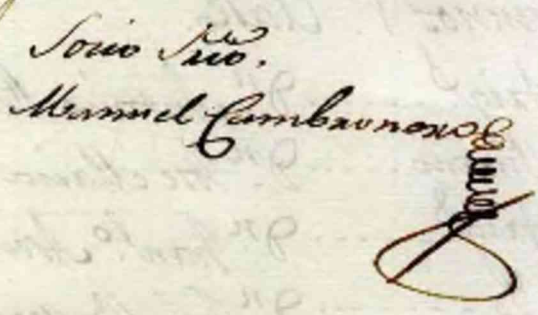 Socio Srio.
Manuel Cambronero